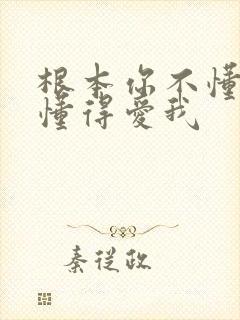 根本你不懂
懂得愛我
秦從政